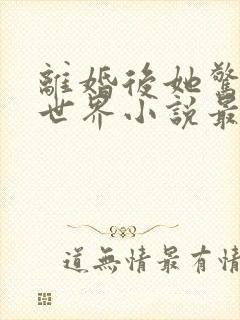 離婚後她驚
世界小說最
道無情最有情